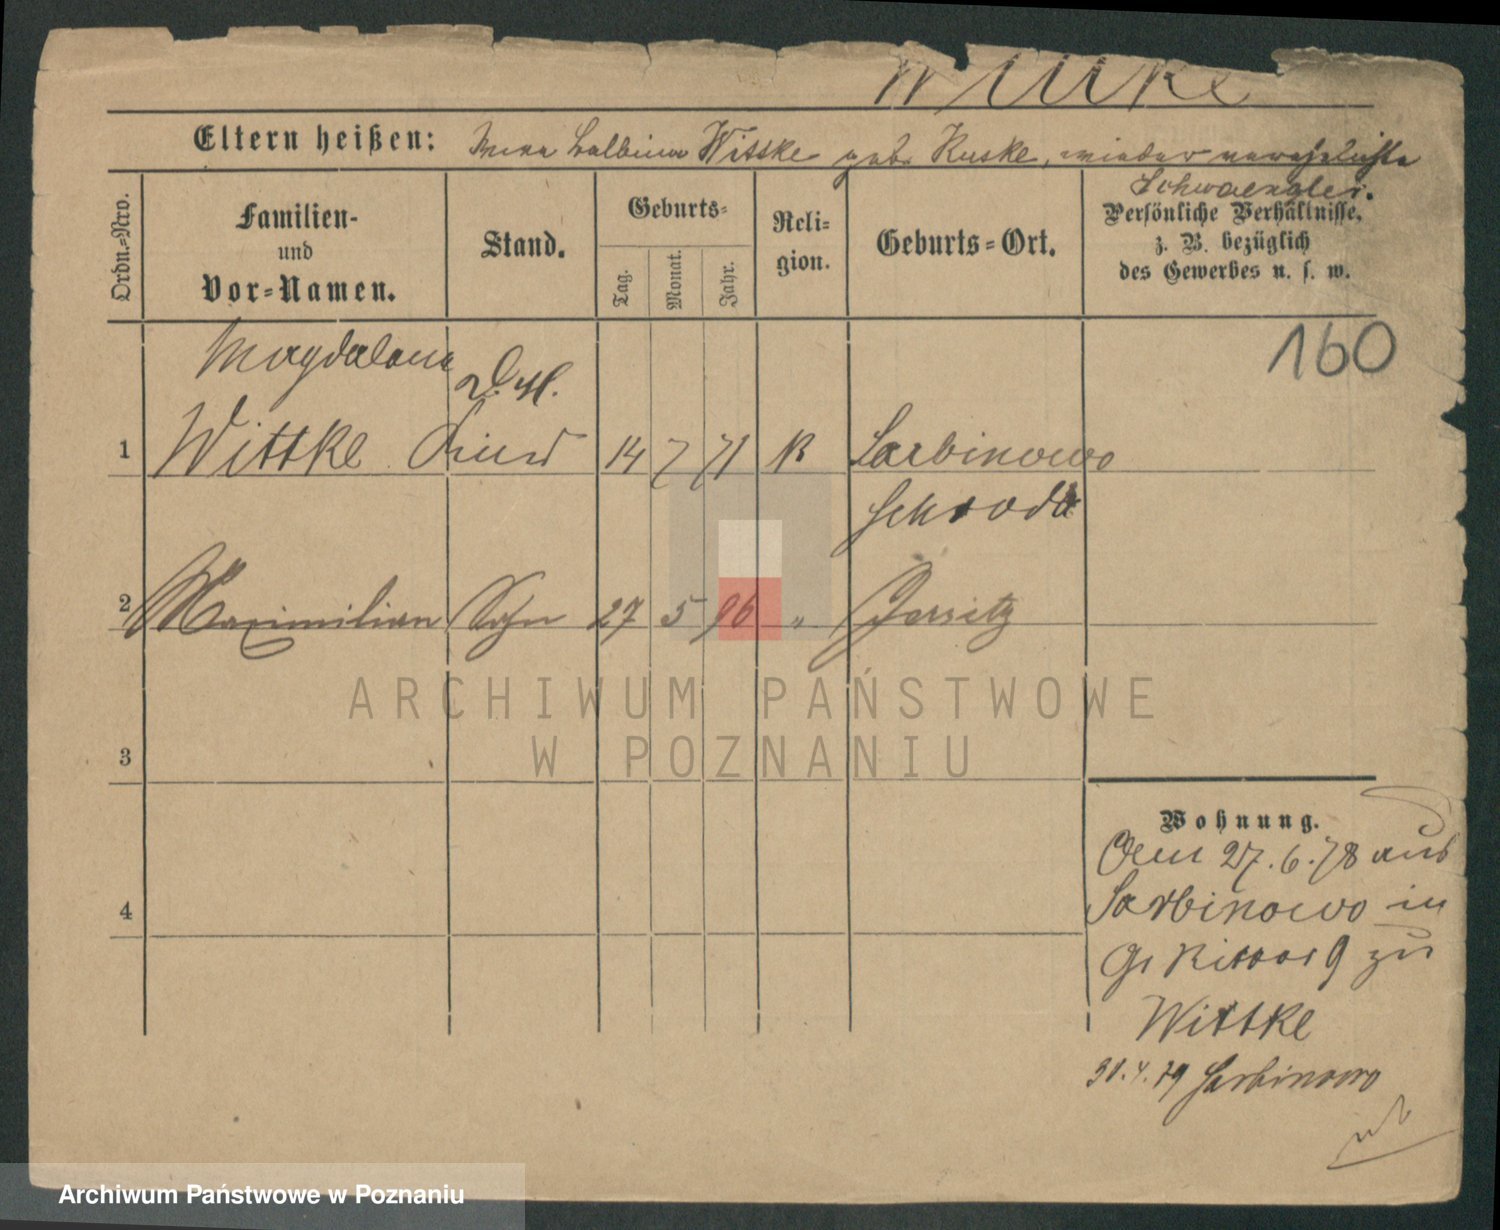 Wittke
Eltern heißen: Anna Balbina Wittke geb. Kuske, wieder verehelichte
Schwaengler.
Ordn.-Nro.
Familien-
und
Vor-Namen.
Stand.
Geburts-
Tag.
Monat.
Jahr.
Reli-
gion.
Geburts-Ort.
Persönliche Verhältnisse,
z. B. bezüglich
des Gewerbes u. s. w.
160
Magdalena
1 Wittke Kind 14 7 71 K Sarbinowo
Schroda
2 Maximilian Sohn 27 5 96 " Jersitz
3
4
Wohnung.
Am 27.6.78 aus
Sarbinowo in
Gr Ritter 9 zu
Wittke
31.4.79 Sarbinowo
ARCHIWUM PAŃSTWOWE
W POZNANIU
Archiwum Państwowe w Poznaniu